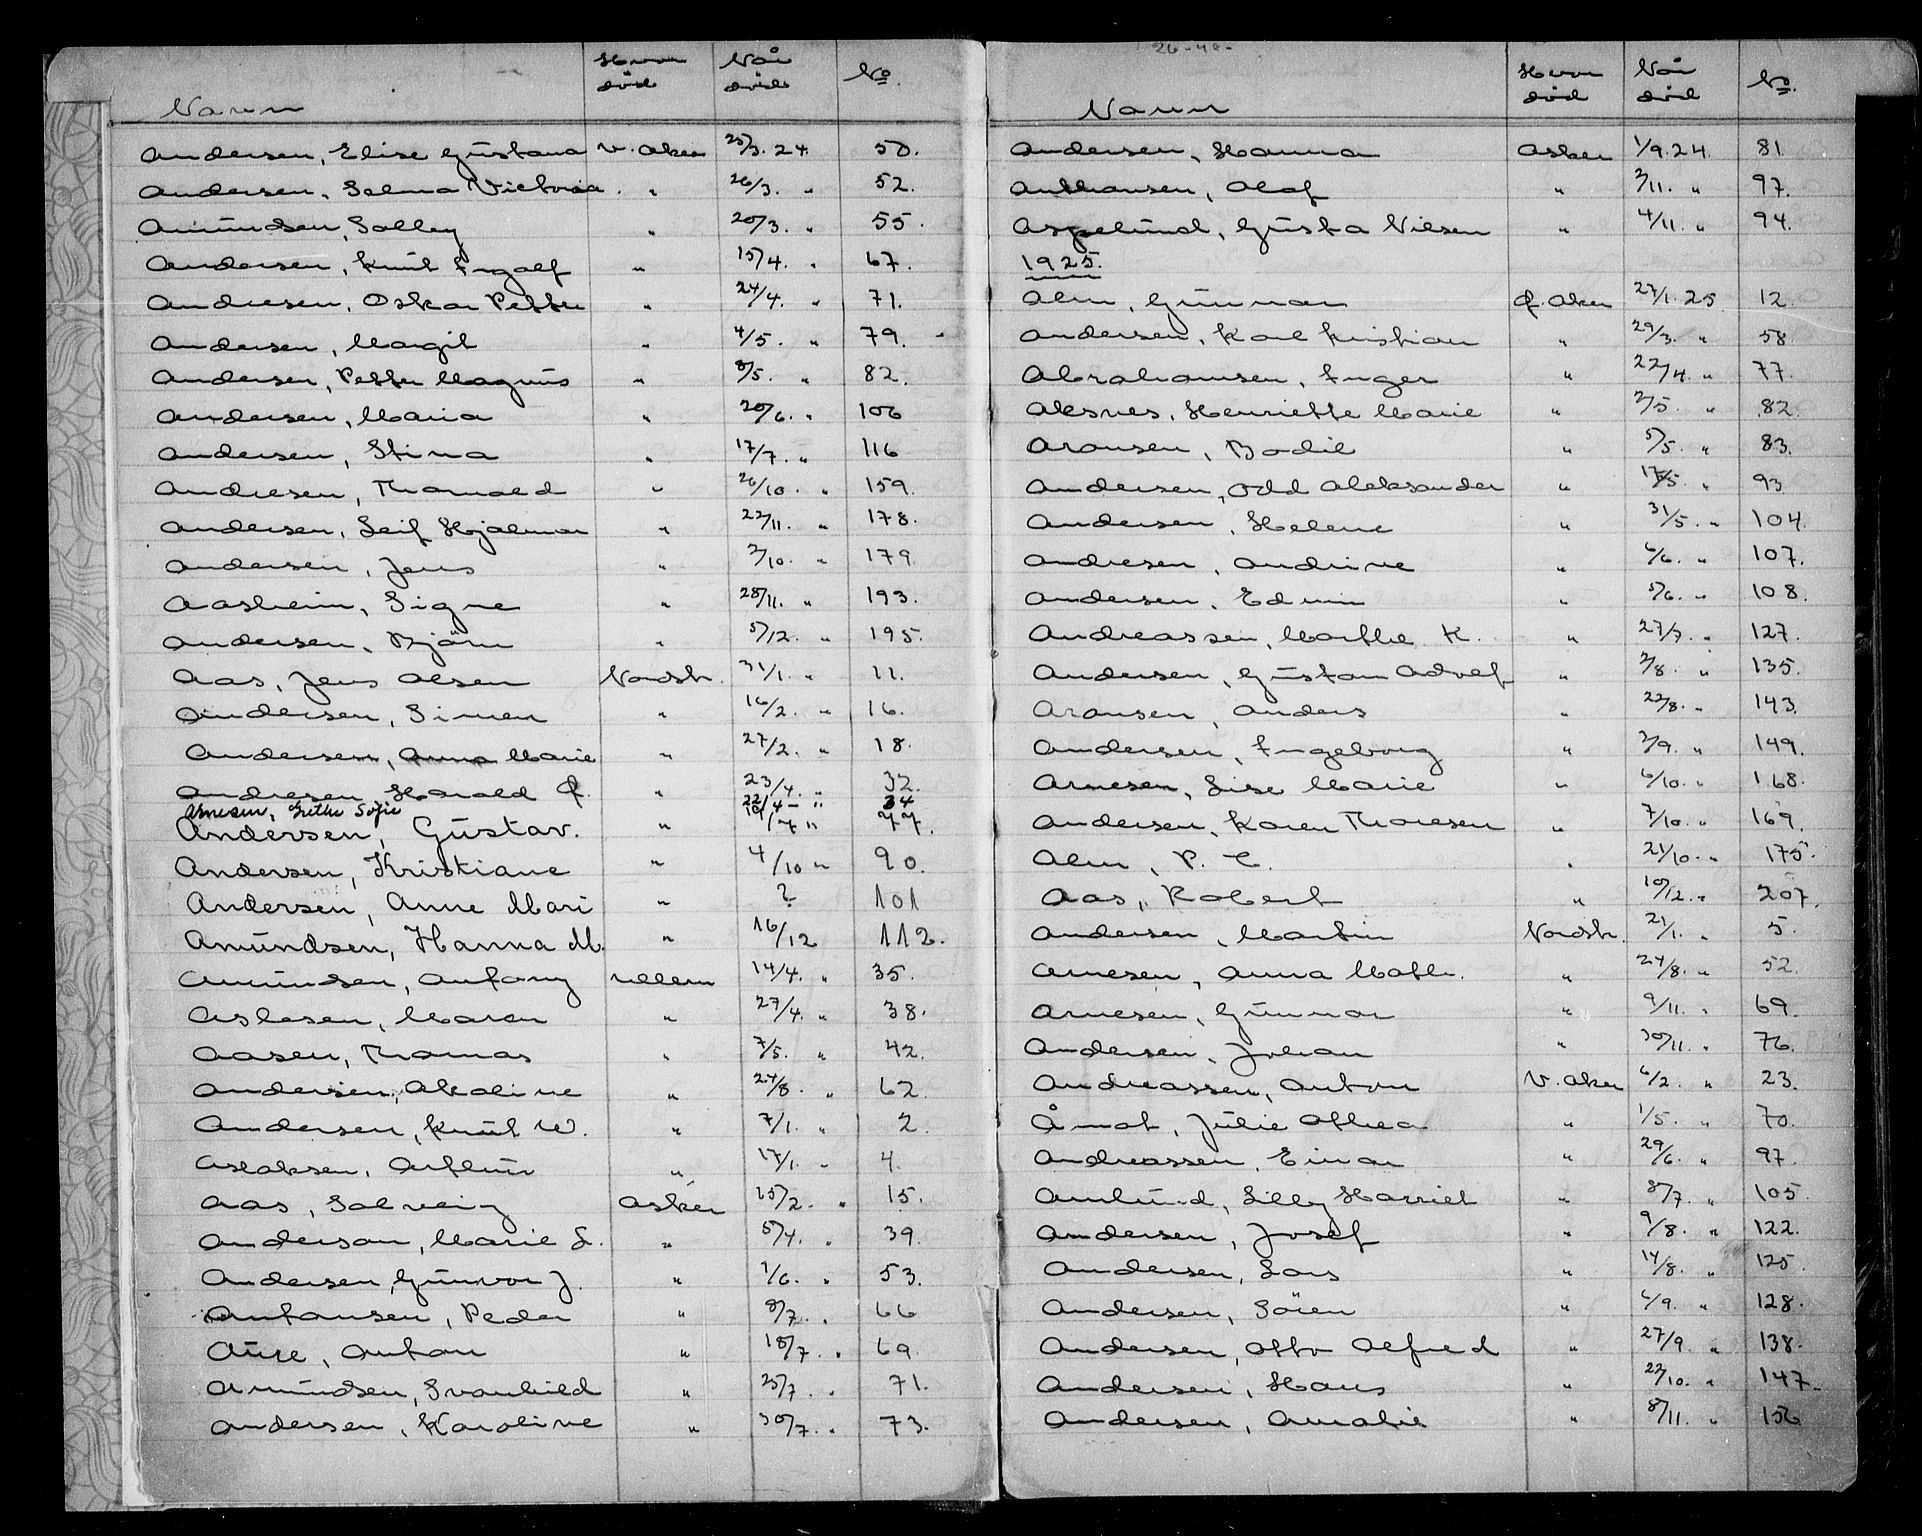 Navn Hvor død Når død No.
Andersen, Elise Gustava V. Aker 25/3. 24. 50.
Andersen, Selma Victoria. " 26/3. " 52.
Amundsen, Solley " 20/3. " 55.
Andersen, Knut Ingolf " 15/4. " 67.
Andresen, Oskar Petter " 24/4. " 71.
Andersen, Margit " 4/5. " 79.
Andersen, Petter Magnus " 8/5. " 82.
Andersen, Maria " 20/6. " 106
Andersen, Stina " 17/7. " 116
Andresen, Thorvald " 26/10. " 159.
Andersen, Leif Hjalmar " 22/11. " 178.
Andersen, Jens " 2/10. " 179.
Aasheim, Signe " 28/11. " 193.
Andersen, Björn " 5/12. " 195.
Aas, Jens Olsen Nordstr. 31/1. " 11.
Andersen, Simen " 16/2. " 16.
Andersen, Anna Marie " 27/2. " 18.
Andresen Harald Ø. " 23/4. " 32.
Arnesen, Grethe Sofie 22/4 - " 34
Andersen, Gustav. " /7 " 77.
Andersen, Kristiane " 4/10 " 90.
Andersen, Anne Mari " ? 101
Amundsen, Hanna M. " 16/12 112.
Amundsen, Antony Ullern 14/4. " 35.
Aslesen, Maren " 27/4. " 38.
Aasen, Thomas " 7/5. " 42.
Andersen, Akoline " 24/8. " 62.
Andersen, Knut W. " 7/1. " 2.
Aslaksen, Arthur " 17/1. " 4.
Aas, Solveig Asker 15/2. " 15.
Anderson, Marie L. " 5/4. " 39.
Andersen, Gunvor J. " 1/6. " 53.
Antonsen, Peder " 8/7. " 66
Aure, Anton " 18/7. " 69.
Amundsen, Svanhild " 25/7. " 71.
Andersen, Karoline " 30/7. " 73.
26-40-
Navn Hvor død Når død No.
Andersen, Hanna Asker 1/9. 24. 81
Anthonsen, Olaf " 2/11. " 97.
Aspelund, Gusta Nilsen " 4/11. " 94.
1925.
Alm, Gunnar Ø. Aker 27/1. 25 12.
Andersen, Karl Kristian " 29/3. " 58
Abrahamsen, Inger " 22/4. " 77.
Aksnes, Henriette Marie " 2/5. " 82.
Aronsen, Bodil " 5/5. " 83.
Andersen, Odd Aleksander " 17/5. " 93
Andersen, Helene " 31/5. " 104.
Andresen, Andrine " 6/6. " 107.
Andersen, Edvin " 5/6. " 108.
Andreassen, Marthe K. " 27/7. " 127.
Andersen, Gustav Adolf " 2/8. " 135.
Aronsen, Anders " 22/8. " 143.
Andersen, Ingeborg " 2/9. " 149.
Arnesen, Lise Marie " 6/10. " 168.
Andersen, Karen Thoresen " 7/10. " 169.
Alm, P. C. " 21/10. " 175.
Aas, Robert " 10/12. " 207.
Andersen, Martin Nordstr. 21/1. " 5.
Arnesen, Anna Math. " 24/8. " 52.
Arnesen, Gunnar " 9/11. " 69.
Andersen, Johan " 30/11. " 76.
Andreassen, Anton V. Aker 6/2. " 23.
Åmot, Julie Othea " 1/5. " 70.
Andreassen, Einar " 29/6. " 97.
Amlund, Lilly Harriet " 8/7. " 105.
Andersen, Josef " 9/8. " 122.
Andersen, Lars " 14/8. " 125.
Andersen, Sören " 6/9. " 128.
Andersen, Otto Alfred " 27/9. " 138.
Andersen, Hans " 22/10. " 147.
Andersen, Amalie " 8/11. " 156